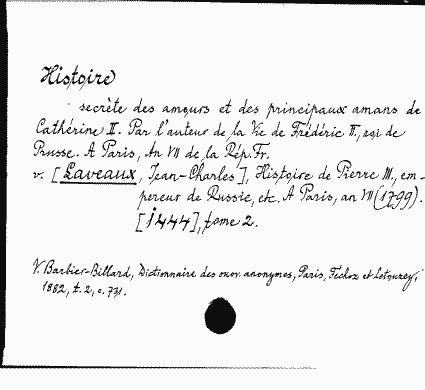 Histoire
secrète des amours et des principaux amans de
Cathérine II. Par l'auteur de la Vie de Frédéric II, roi de
Prusse. A Paris, An VII de la Rép. Fr.
v. [Laveaux, Jean-Charles], Histoire de Pierre III, em-
pereur de Russie, etc. A Paris, an VII (1799).
[1444], tome 2.
V. Barbier-Billard, Dictionnaire des ouv. anonymes, Paris, Féchoz et Letouzey,
1882, t. 2, c. 731.